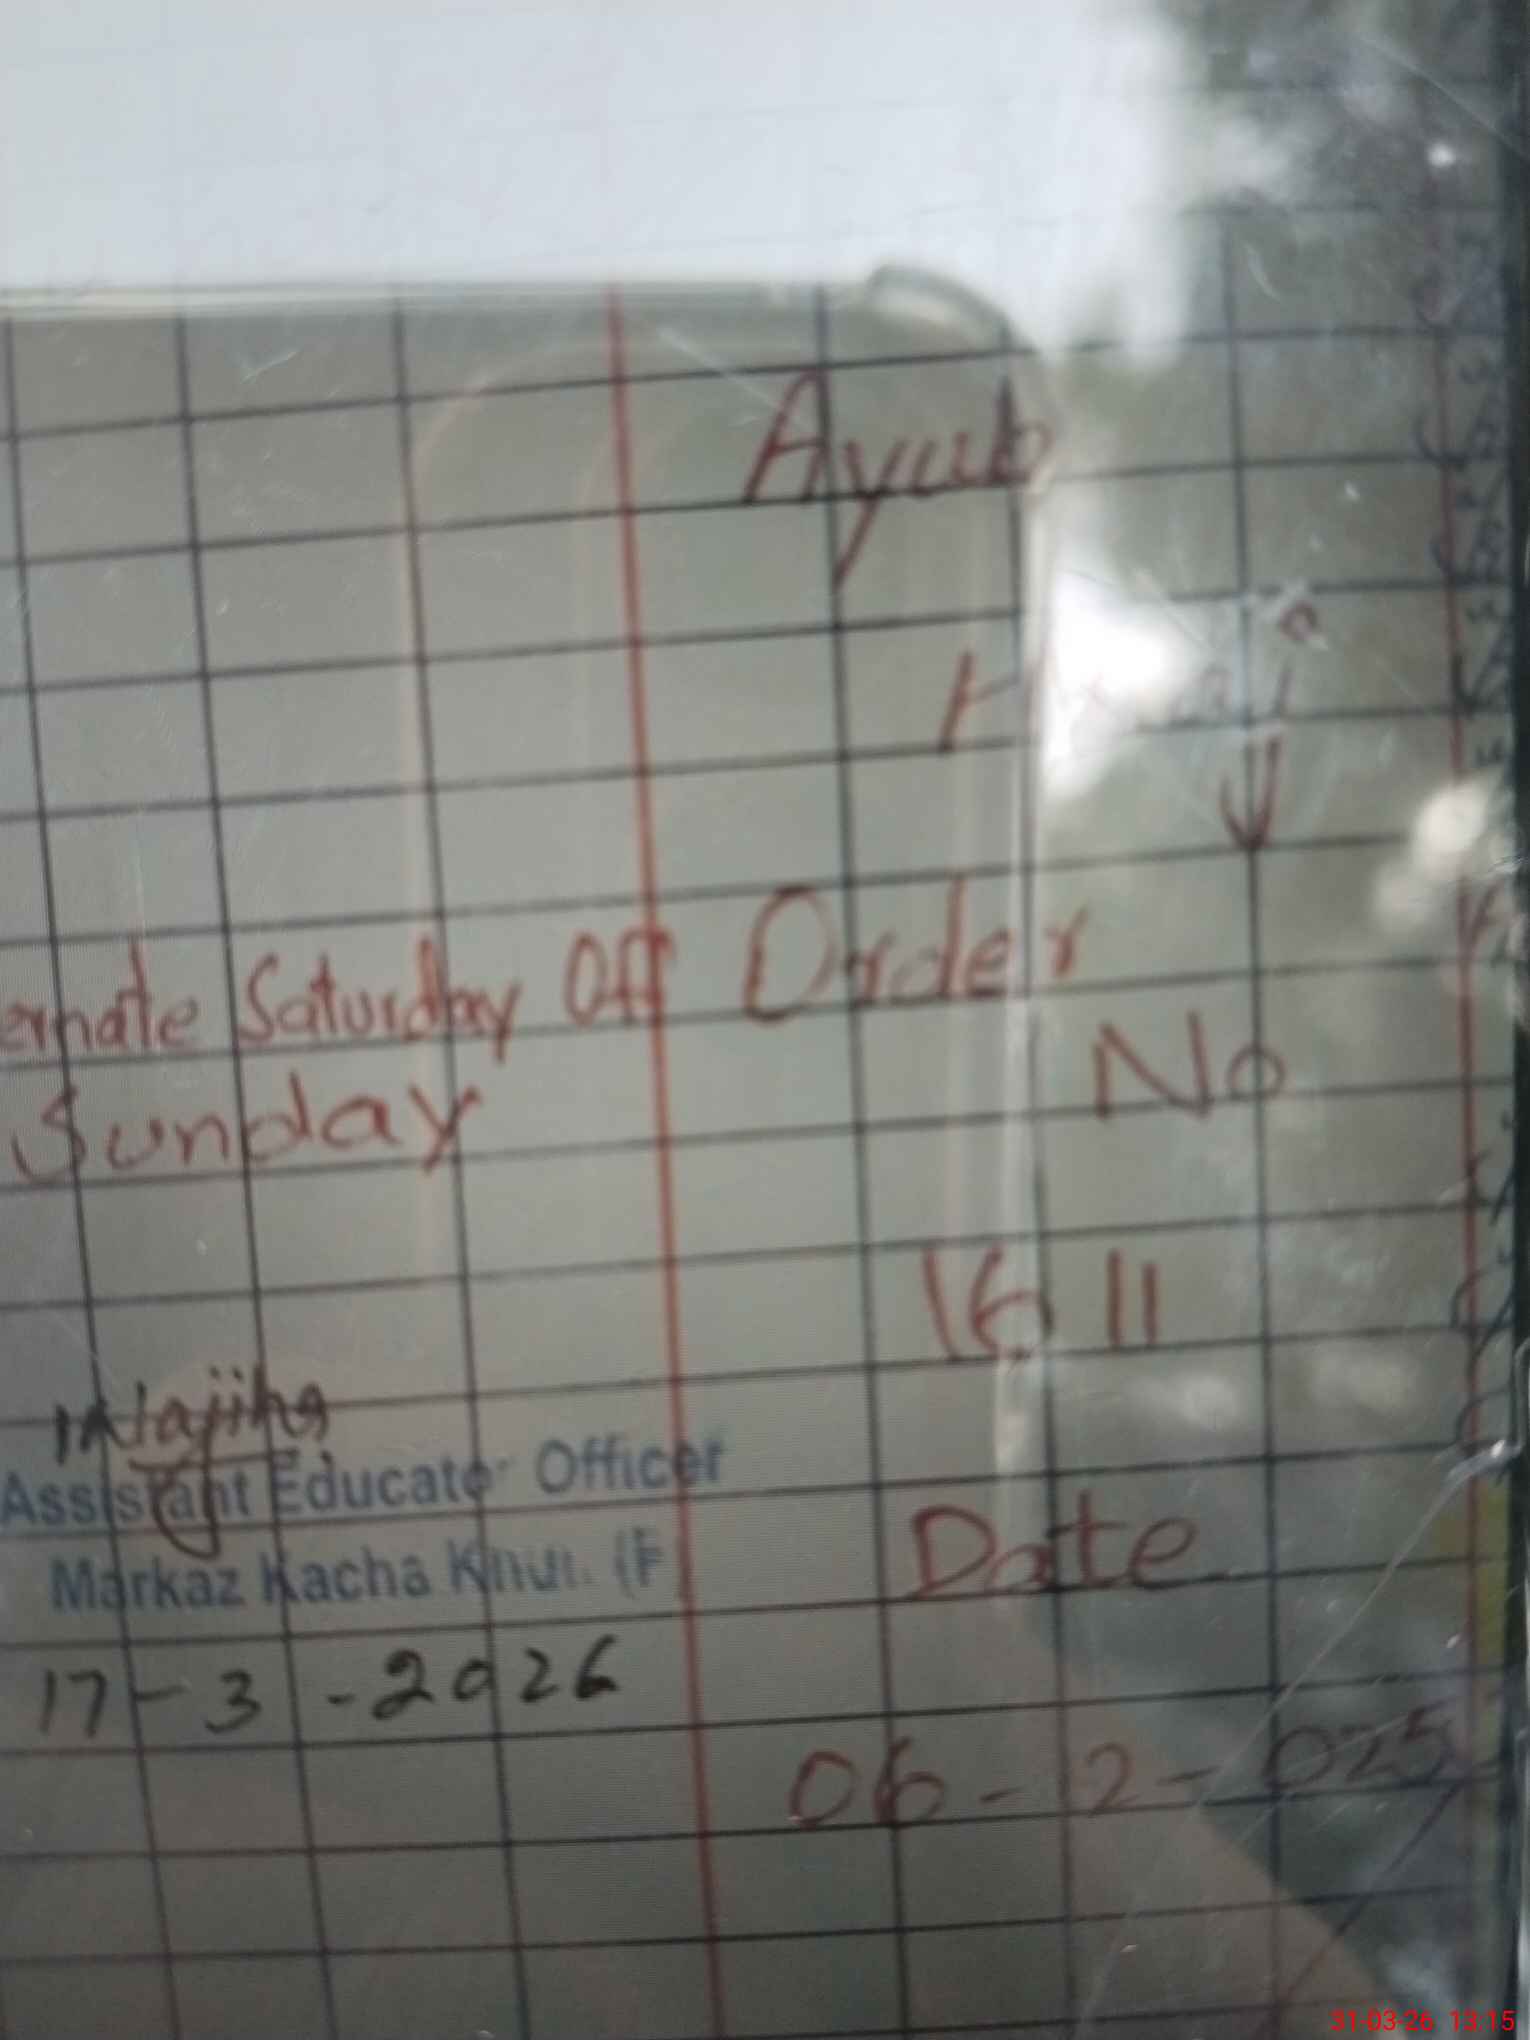 Ayub
ernate Saturday Off Order
Sunday
No
16 11
Assistant Educato Officer
Markaz Kacha
Date
17-3-2026
06-2-025
31-03-26 13:15